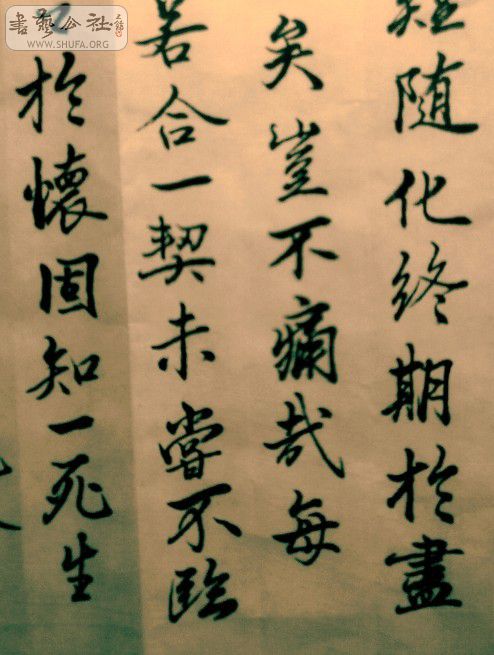 短隨化終期於盡
矣豈不痛哉每
若合一契未嘗不臨
於懷固知一死生
書藝公社
WWW.SHUFA.ORG